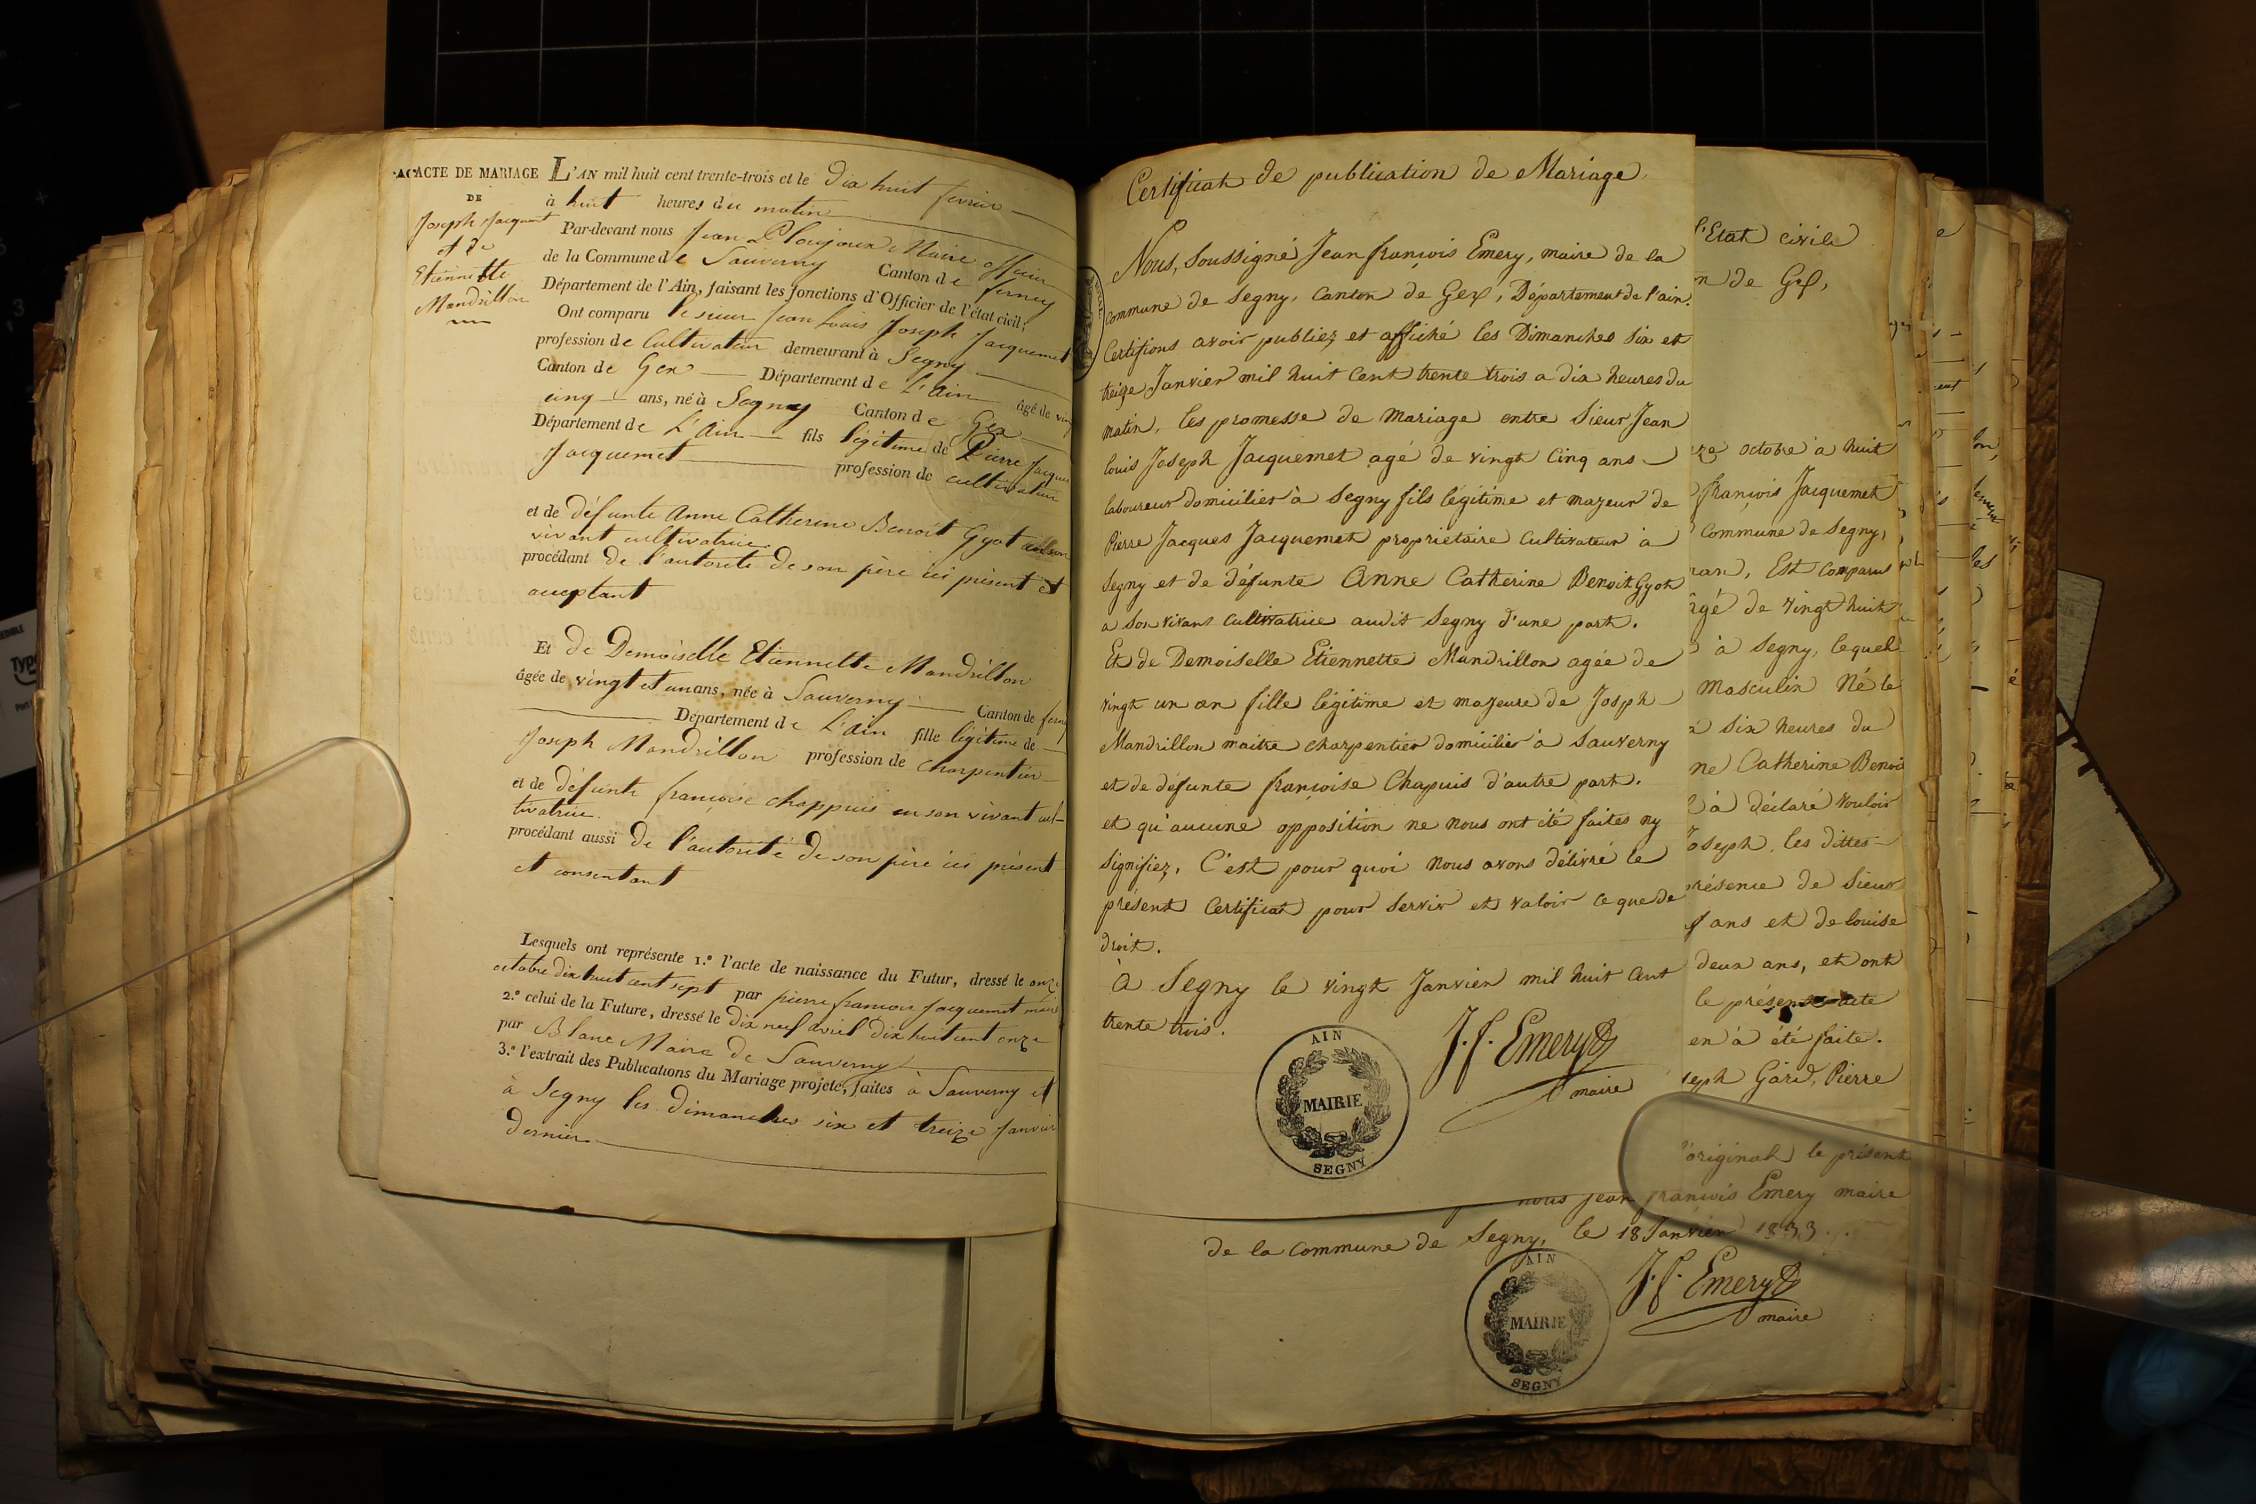 ACTE DE MARIAGE
DE
Joseph Jacquemet
et de
Etiennette
Mandrillon
L'AN mil huit cent trente-trois et le dix huit fevrier
à huit heures du matin
Par-devant nous Jean L Maire officier
de la Commune de Sauverny Canton de ferney
Département de l'Ain, faisant les fonctions d'Officier de l'état civil;
Ont comparu le sieur Jean Louis Joseph Jacquemet
profession de Cultivateur demeurant à Segny
Canton de Gex Département de L'Ain âgé de vingt
cinq ans, né à Segny Canton de Gex
Département de L'Ain fils légitime de Pierre Jacques
Jacquemet profession de cultivateur
et de défunte Anne Catherine Benoit Gyot en son
vivant cultivatrice
procédant de l'autorité de son père ici présent et
acceptant
Et de Demoiselle Etiennette Mandrillon
âgée de vingt et un ans, née à Sauverny Canton de ferney
Département de L'ain fille légitime de
Joseph Mandrillon profession de charpentier
et de défunte françoise chappuis en son vivant cul-
tivatrice.
procédant aussi de l'autorité de son père ici présent
et consentant
Lesquels ont représente 1.º l'acte de naissance du Futur, dressé le onze
octobre dix huit cent sept par pierre françois Jacquemet maire
2.º celui de la Future, dressé le dix neuf avril dix huit cent onze
par Blanc Maire de Sauverny
3.º l'extrait des Publications du Mariage projeté, faites à Sauverny et
à Segny les dimanches six et treize Janvier
dernier
Certificat de publication de Mariage.
Nous, soussigné Jean françois Emery, maire de la
commune de Segny, Canton de Gex, Département de l'ain.
Certifions avoir publiez et affiché les Dimanches six et
treize Janvier mil huit cent trente trois a dix heures du
matin, les promesse de mariage entre Sieur Jean
louis Joseph Jacquemet agé de vingt cinq ans
laboureur domicilier à Segny fils légitime et majeur de
Pierre Jacques Jacquemet propriétaire cultivateur à
Segny et de défunte Anne Catherine Benoit Gyot
a son vivant cultivatrice audit Segny d'une part.
Et de Demoiselle Etiennette Mandrillon agée de
vingt un an fille légitime et majeure de Josph
Mandrillon maitre charpentier domicilier à Sauverny
et de defunte françoise Chapuis d'autre part.
et qu'aucune opposition ne nous ont été faites ny
signifiez, C'est pour quoi nous avons délivré le
présent Certificat pour servir et valoir ce que de
droit.
à Segny le vingt Janvier mil huit cent
trente trois.
J. f. Emery
maire
AIN
MAIRIE
SEGNY
l'Etat civile
n de Gex,
octobre à huit
françois Jacquemet
commune de Segny,
Est comparus
agé de vingt huit
à Segny, lequel
masculin Né le
à six heures du
ne Catherine Benoi
à déclaré vouloir
Joseph, les dittes
présence de Sieur
ans et de louise
deux ans, et ont
le présent acte
en à été faite.
seph Gard, Pierre
l'original le présent
nous jean francois Emery maire
de la commune de Segny, le 18 Janvier 1833.
J. f. Emery
maire
AIN
MAIRIE
SEGNY